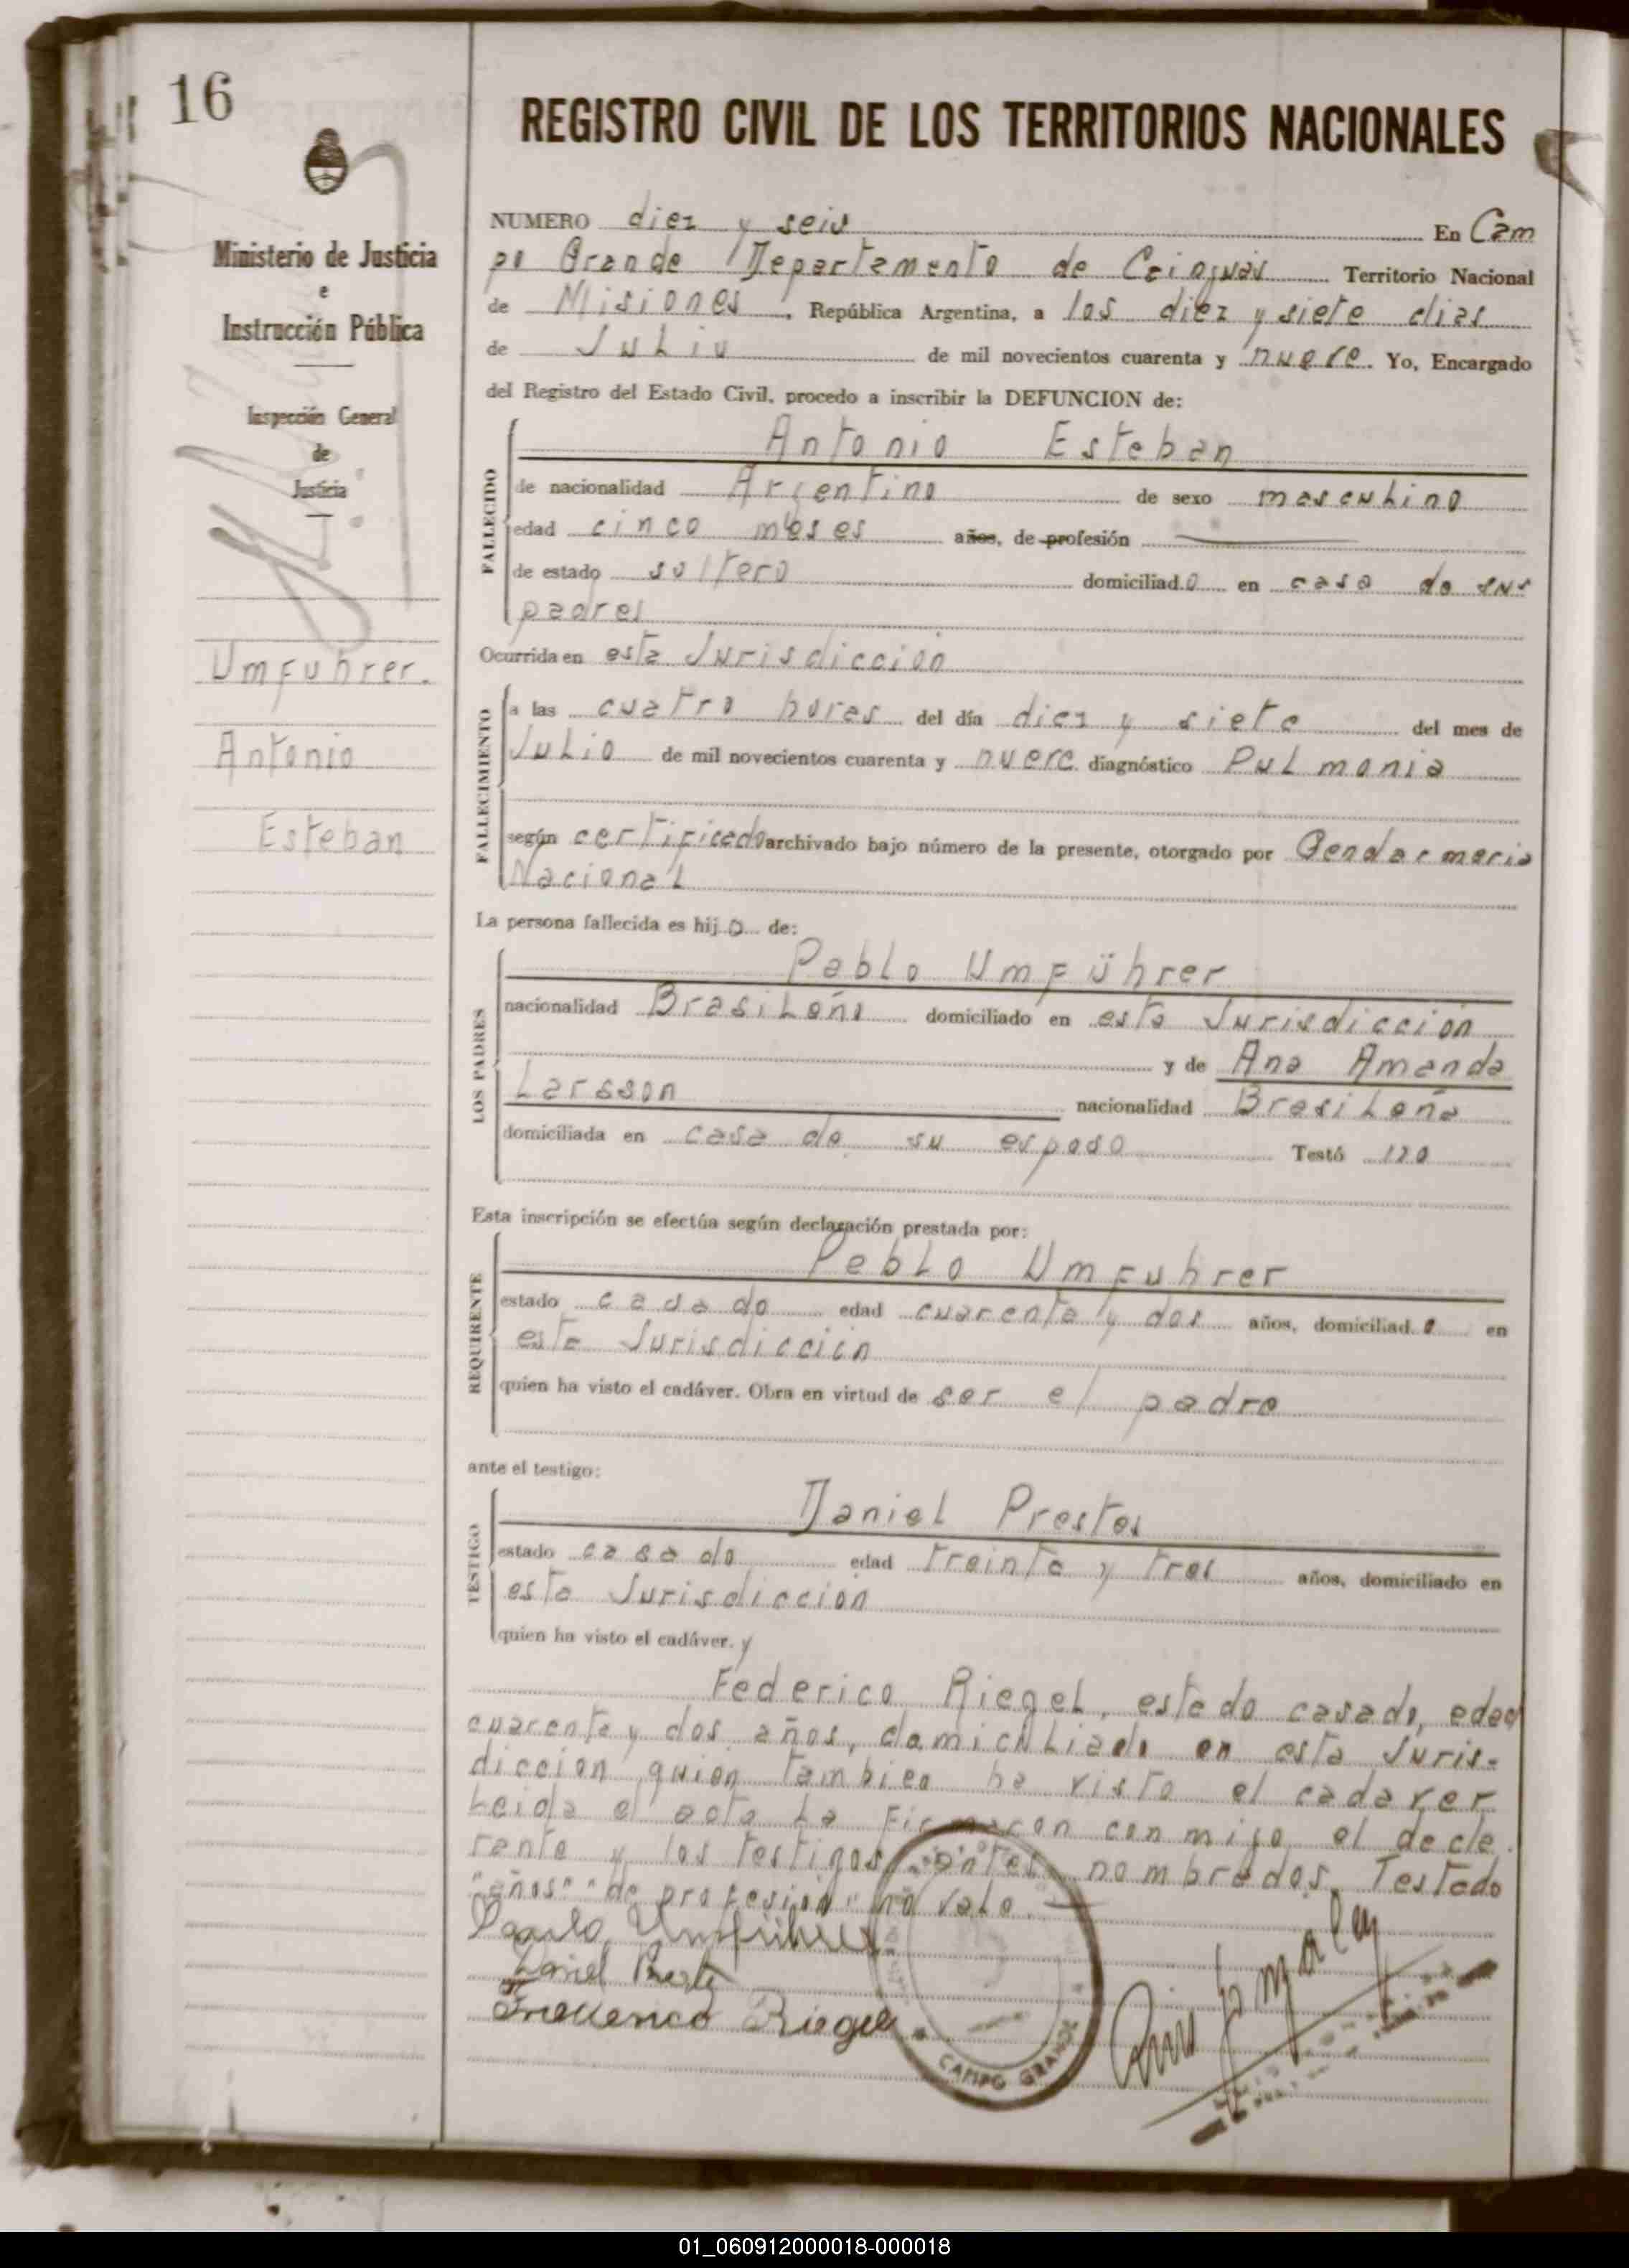 16
Ministerio de Justicia
e
Instrucción Pública
Inspección General
de
Justicia
Umfuhrer.
Antonio
Esteban
REGISTRO CIVIL DE LOS TERRITORIOS NACIONALES
NUMERO diez y seis En Cam
po Grande Departamento de Cainguás Territorio Nacional
de Misiones, República Argentina, a los diez y siete dias
de Julio de mil novecientos cuarenta y nueve. Yo, Encargado
del Registro del Estado Civil, procedo a inscribir la DEFUNCION de:
FALLECIDO
Antonio Esteban
de nacionalidad Argentino de sexo masculino
edad cinco meses años, de profesión
de estado soltero domiciliado en casa de sus
padres
Ocurrida en esta Jurisdicción
FALLECIMIENTO
a las cuatro horas del día diez y siete del mes de
Julio de mil novecientos cuarenta y nueve diagnóstico Pulmonia
según certificado archivado bajo número de la presente, otorgado por Gendarmeria
Nacional
La persona fallecida es hijo de:
LOS PADRES
Pablo Umführer
nacionalidad Brasileño domiciliado en esta Jurisdicción
y de Ana Amanda
Larsson nacionalidad Brasileña
domiciliada en casa de su esposo Testó
Esta inscripción se efectúa según declaración prestada por:
REQUIRENTE
Pablo Umfuhrer
estado casado edad cuarenta y dos años, domiciliado en
esta Jurisdicción
quien ha visto el cadáver. Obra en virtud de ser el padre
ante el testigo:
TESTIGO
Daniel Prestes
estado casado edad treinta y tres años, domiciliado en
esta Jurisdicción
quien ha visto el cadáver. y
Federico Riegel, estado casado, edad
cuarenta y dos años, domiciliado en esta Juris-
diccion, quien tambien ha visto el cadaver
Leida el acta la firmaron conmigo el decla
rante y los testigos antes nombrados. Testado
"años" "de profesión" no vale.
Paulo Umführer
Daniel Prestes
Frederico Riegel
CAMPO GRANDE
01_060912000018-000018